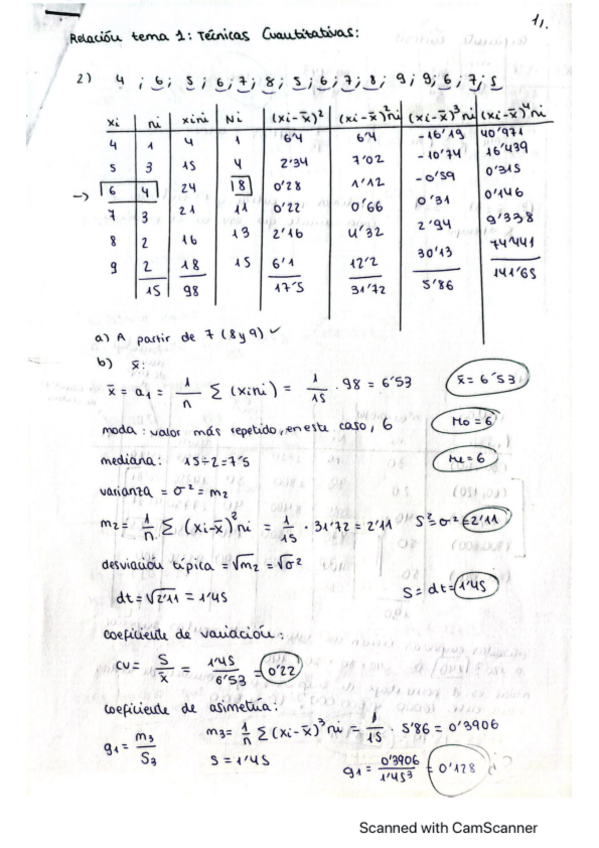 1,.
Relación tema 1: Técnicas Cuantitativas:
2) 4 ; 6 ; 5 ; 6 ; 7 ; 8 ; 5 ; 6 ; 7 ; 8 ; 9 ; 9 ; 6 ; 7 ; 5
xi ni xini Ni (xi-x̄)² (xi-x̄)²ni (xi-x̄)³ni (xi-x̄)⁴ni
4 1 4 1 6'4 6'4 -16'19 40'971
5 3 15 4 2'34 7'02 -10'74 16'439
→ 6 4 24 8 0'28 1'12 -0'59 0'315
7 3 21 11 0'22 0'66 0'31 0'146
8 2 16 13 2'16 4'32 2'94 9'338
9 2 18 15 6'1 12'2 30'13 74'441
15 98 17'5 31'72 5'86 141'65
a) A partir de 7 (8 y 9) ✓
b) x̄:
x̄ = a1 = 1/n Σ (xini) = 1/15 · 98 = 6'53 x̄ = 6'53
moda: valor más repetido, en este caso, 6 Mo = 6
mediana: 15÷2=7'5 Me = 6
varianza = σ² = m2
m2 = 1/n Σ (xi-x̄)²ni = 1/15 · 31'72 = 2'11 S² = σ² = 2'11
desviación típica = √m2 = √σ²
dt = √2'11 = 1'45 S = dt = 1'45
coeficiente de variación:
CV = S/x̄ = 1'45/6'53 = 0'22
coeficiente de asimetría:
g1 = m3/S3 m3 = 1/n Σ (xi-x̄)³ni = 1/15 · 5'86 = 0'3906
S = 1'45 g1 = 0'3906/1'45³ = 0'128
Scanned with CamScanner